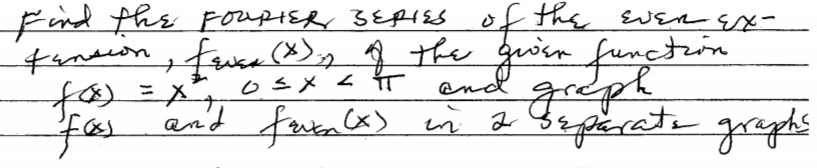 Find the FOURIER SERIES of the even ex-
tension, f_even(x), of the given function
f(x) = x², 0 ≤ x < π and graph
f(x) and f_even(x) in 2 separate graphs